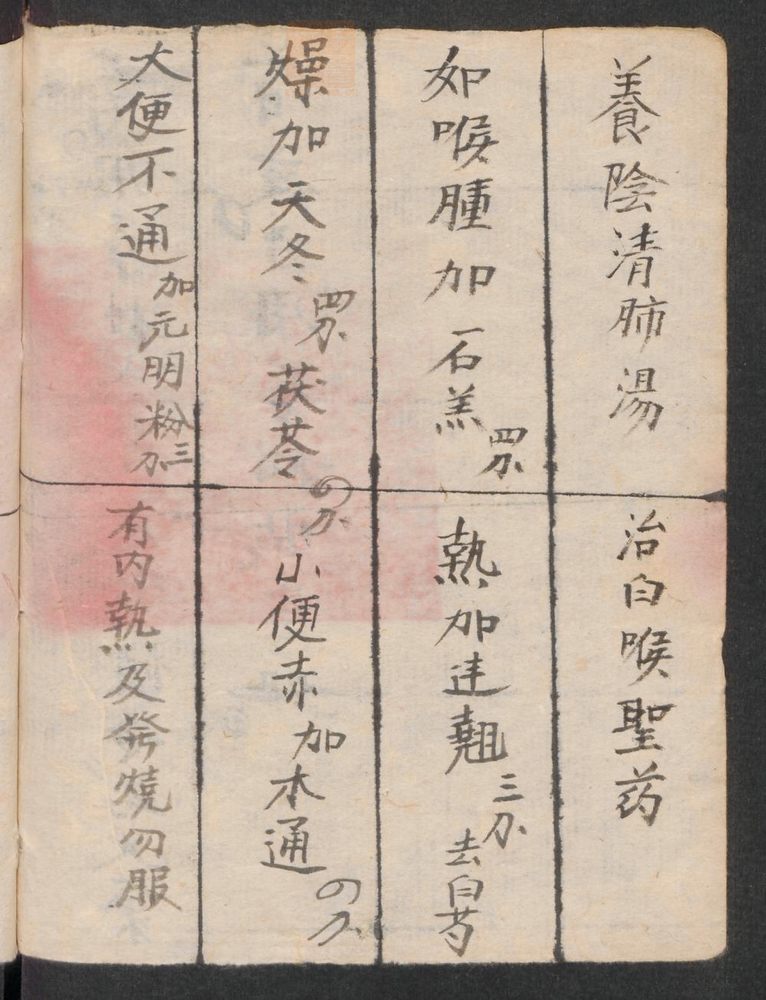 養陰清肺湯 治白喉聖药
如喉腫加石羔四分 熱加連翹三分去白芍
燥加天冬四分茯苓四分 小便赤加木通四分
大便不通加元明粉三分 有内熱及發燒勿服